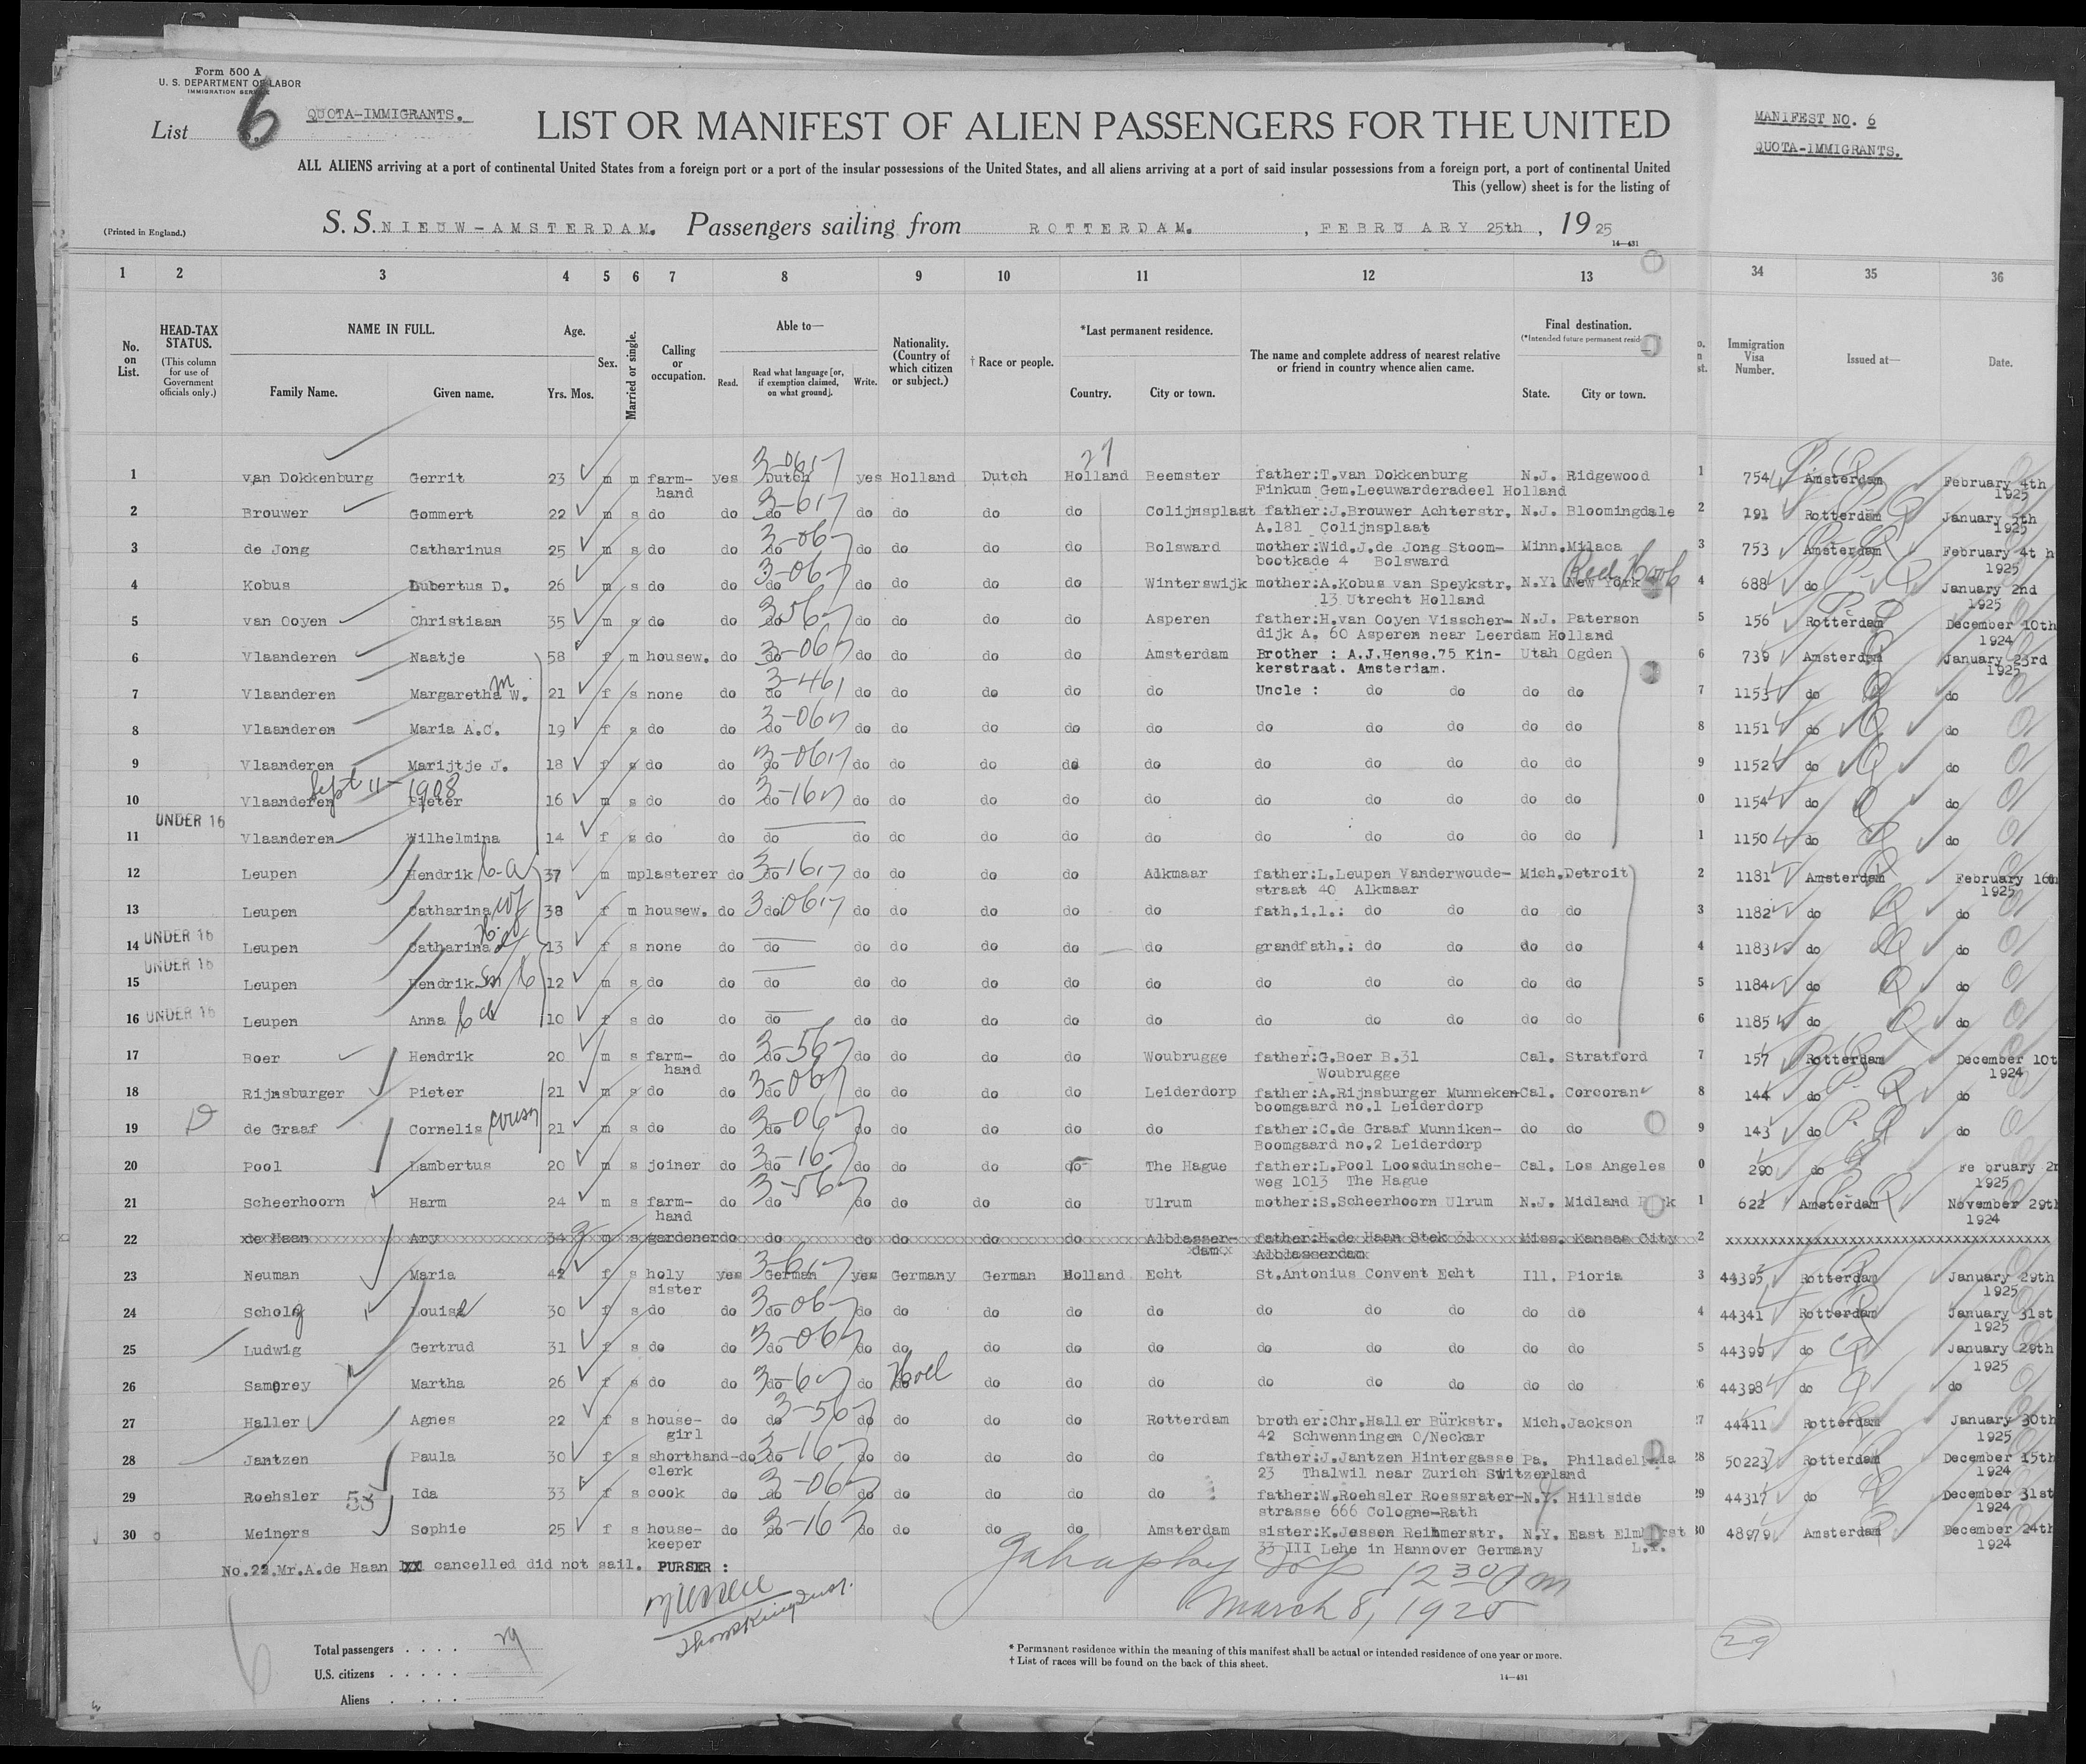 Form 500 A
U. S. DEPARTMENT OF LABOR
IMMIGRATION SERVICE
List 6 QUOTA-IMMIGRANTS.
LIST OR MANIFEST OF ALIEN PASSENGERS FOR THE UNITED
ALL ALIENS arriving at a port of continental United States from a foreign port or a port of the insular possessions of the United States, and all aliens arriving at a port of said insular possessions from a foreign port, a port of continental United
This (yellow) sheet is for the listing of
MANIFEST NO. 6
QUOTA-IMMIGRANTS.
(Printed in England.) S. S. NIEUW-AMSTERDAM. Passengers sailing from ROTTERDAM. , FEBRUARY 25th , 19 25
14—431
1 2 3 4 5 6 7 8 9 10 11 12 13 34 35 36
No. on List.
HEAD-TAX STATUS.
(This column for use of Government officials only.)
NAME IN FULL.
Family Name. Given name.
Age.
Yrs. Mos.
Sex.
Married or single.
Calling or occupation.
Able to—
Read. Read what language [or, if exemption claimed, on what ground]. Write.
Nationality. (Country of which citizen or subject.)
† Race or people.
*Last permanent residence.
Country. City or town.
The name and complete address of nearest relative or friend in country whence alien came.
Final destination.
(*Intended future permanent resid
State. City or town.
Immigration Visa Number.
Issued at—
Date.
27
1 van Dokkenburg Gerrit 23 m m farm- yes Dutch yes Holland Dutch Holland Beemster father:T.van Dokkenburg N.J. Ridgewood 1 754 Amsterdam February 4th
hand Finkum Gem.Leeuwarderadeel Holland 1925
2 Brouwer Gommert 22 m s do do do do do do do Colijnsplaat father:J.Brouwer Achterstr. N.J. Bloomingdale 2 191 Rotterdam January 5th
A.181 Colijnsplaat 1925
3 de Jong Catharinus 25 m s do do do do do do do Bolsward mother:Wid.J.de Jong Stoom- Minn.Milaca 3 753 Amsterdam February 4t h
bootkade 4 Bolsward 1925
Red Hook
4 Kobus Lubertus D. 26 m s do do do do do do do Winterswijk mother:A.Kobus van Speykstr. N.Y. New York 4 688 do January 2nd
13 Utrecht Holland 1925
5 van Ooyen Christiaan 35 m s do do do do do do do Asperen father:H.van Ooyen Visscher- N.J. Paterson 5 156 Rotterdam December 10th
dijk A. 60 Asperen near Leerdam Holland 1924
6 Vlaanderen Naatje 58 f m housew. do do do do do do Amsterdam Brother : A.J.Hense.75 Kin- Utah Ogden 6 739 Amsterdam January 23rd
kerstraat. Amsterdam. 1925
7 Vlaanderen Margaretha M W. 21 f s none do do do do do do do Uncle : do do do do 7 1153 do do
8 Vlaanderen Maria A.C. 19 f s do do do do do do do do do do do do do 8 1151 do do
9 Vlaanderen Marijtje J. 18 f s do do do do do do do do do do do do do 9 1152 do do
Sept 11 - 1908
10 Vlaanderen Pieter 16 m s do do do do do do do do do do do do do 0 1154 do do
UNDER 16
11 Vlaanderen Wilhelmina 14 f s do do do do do do do do do do do do do 1 1150 do do
12 Leupen Hendrik 37 m m plasterer do do do do do do Alkmaar father:L.Leupen Vanderwoude- Mich.Detroit 2 1181 Amsterdam February 16th
straat 40 Alkmaar 1925
13 Leupen Catharina wf 38 f m housew. do do do do do do do fath.i.l.: do do do do 3 1182 do do
14 UNDER 16 Leupen Catharina 13 f s none do do do do do do do grandfath.: do do do do 4 1183 do do
UNDER 16
15 Leupen Hendrik 12 m s do do do do do do do do do do do do do 5 1184 do do
16 UNDER 16 Leupen Anna 10 f s do do do do do do do do do do do do do 6 1185 do do
17 Boer Hendrik 20 m s farm- do do do do do do Woubrugge father:G.Boer B.31 Cal. Stratford 7 157 Rotterdam December 10t
hand Woubrugge 1924
18 Rijnsburger Pieter 21 m s do do do do do do do Leiderdorp father:A.Rijnsburger Munneken- Cal. Corcoran 8 144 do do
boomgaard no.1 Leiderdorp
19 de Graaf Cornelis cousin 21 m s do do do do do do do do father:C.de Graaf Munniken- do do 9 143 do do
Boomgaard no.2 Leiderdorp
20 Pool Lambertus 20 m s joiner do do do do do do The Hague father:L.Pool Loosduinsche- Cal. Los Angeles 0 290 do Fe bruary 2n
weg 1013 The Hague 1925
21 Scheerhoorn Harm 24 m s farm- do do do do do do Ulrum mother:S.Scheerhoorn Ulrum N.J. Midland P k 1 622 Amsterdam November 29th
hand 1924
22 de Haan Ary 34 m s gardener do do do do do do Alblasser- father:H.de Haan Stek 31 Miss. Kansas City 2
dam Alblasserdam
23 Neuman Maria 42 f s holy yes German yes Germany German Holland Echt St.Antonius Convent Echt Ill. Pioria 3 44395 Rotterdam January 29th
sister 1925
24 Scholz Louise 30 f s do do do do do do do do do do do do do 4 44341 Rotterdam January 31st
1925
25 Ludwig Gertrud 31 f s do do do do do do do do do do do do do 5 44399 do January 29th
1925
26 Samorey Martha 26 f s do do do do do do do do do do do do do 6 44398 do do
27 Haller Agnes 22 f s house- do do do do do do Rotterdam brother:Chr.Haller Bürkstr. Mich.Jackson 7 44411 Rotterdam January 30th
girl 42 Schwenningen O/Neckar 1925
28 Jantzen Paula 30 f s shorthand- do do do do do do do father:J.Jantzen Hintergasse Pa. Philadelphia 28 50223 Rotterdam December 15th
clerk 23 Thalwil near Zurich Switzerland 1924
29 Roehsler Ida 33 f s cook do do do do do do do father:W.Roehsler Roessrater- N.Y. Hillside 29 44317 do December 31st
strasse 666 Cologne-Rath 1924
30 Meiners Sophie 25 f s house- do do do do do do Amsterdam sister:K.Jessen Reihmerstr. N.Y. East Elmhurst 30 48979 Amsterdam December 24th
keeper 33 III Lehe in Hannover Germany L.I. 1924
No.22.Mr.A.de Haan cancelled did not sail. PURSER :
12 30 PM
March 8, 1925
Total passengers . . . . 29
U.S. citizens . . . . .
Aliens . . . .
* Permanent residence within the meaning of this manifest shall be actual or intended residence of one year or more.
† List of races will be found on the back of this sheet.
14—431
29
6